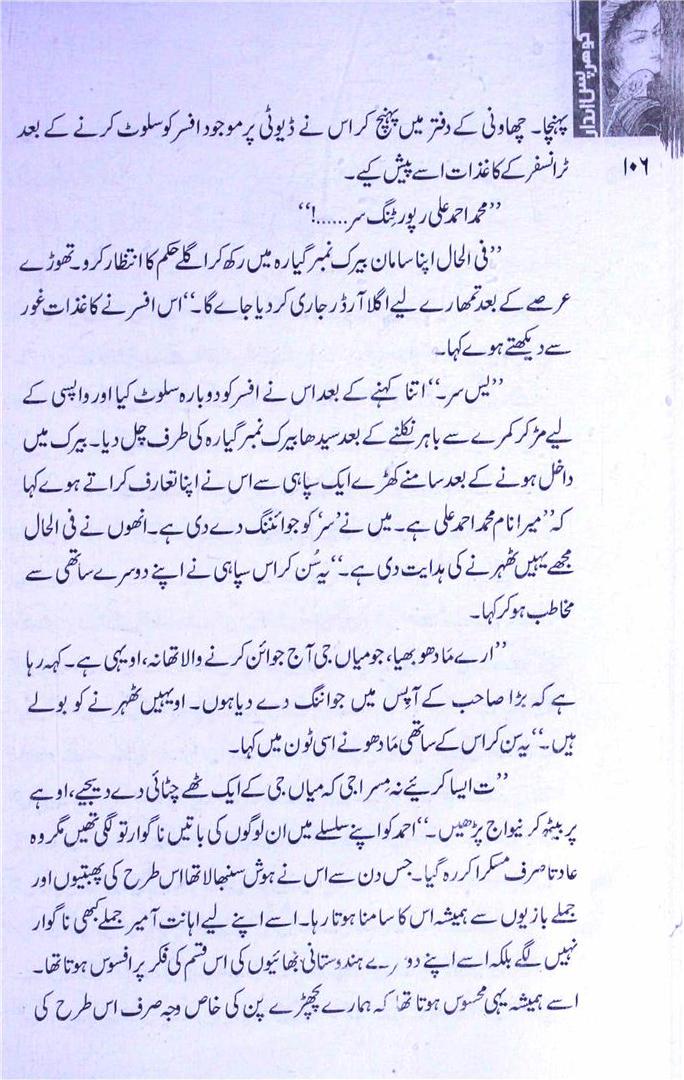 گوہر پس انداز
۱۰۶
پہنچا۔ چھاونی کے دفتر میں پہنچ کر اس نے ڈیوٹی پر موجود افسر کو سلوٹ کرنے کے بعد
ٹرانسفر کے کاغذات اسے پیش کیے۔
’’محمد احمد علی رپورٹنگ سر......!‘‘
’’فی الحال اپنا سامان بیرک نمبر گیارہ میں رکھ کر اگلے حکم کا انتظار کرو۔ تھوڑے
عرصے کے بعد تمھارے لیے اگلا آرڈر جاری کر دیا جاے گا۔‘‘ اس افسر نے کاغذات غور
سے دیکھتے ہوے کہا۔
’’یس سر۔‘‘ اتنا کہنے کے بعد اس نے افسر کو دوبارہ سلوٹ کیا اور واپسی کے
لیے مڑ کر کمرے سے باہر نکلنے کے بعد سیدھا بیرک نمبر گیارہ کی طرف چل دیا۔ بیرک میں
داخل ہونے کے بعد سامنے کھڑے ایک سپاہی سے اس نے اپنا تعارف کراتے ہوے کہا
کہ ’’میرا نام محمد احمد علی ہے۔ میں نے ’سر‘ کو جوائننگ دے دی ہے۔ انھوں نے فی الحال
مجھے یہیں ٹھہرنے کی ہدایت دی ہے۔‘‘ یہ سُن کر اس سپاہی نے اپنے دوسرے ساتھی سے
مخاطب ہو کر کہا۔
’’ارے مَادھو بھیا، جو میاں جی آج جوائن کرنے والا تھا نہ، او یہی ہے۔ کہہ رہا
ہے کہ بڑا صاحب کے آپس میں جواننگ دے دیا ہوں۔ او یہیں ٹھہرنے کو بولے
ہیں۔‘‘ یہ سن کر اس کے ساتھی مَادھو نے اسی ٹون میں کہا۔
’’ت ایسا کریئے نہ مِسرا جی کہ میاں جی کے ایک ٹھے چٹائی دے دیجیے، او ہے
پر بیٹھ کر نیواج پڑھیں۔‘‘ احمد کو اپنے سلسلے میں ان لوگوں کی باتیں ناگوار تو لگی تھیں مگر وہ
عادتا صرف مسکرا کر رہ گیا۔ جس دن سے اس نے ہوش سنبھالا تھا اس طرح کی پھبتیوں اور
جملے بازیوں سے ہمیشہ اس کا سامنا ہوتا رہا۔ اسے اپنے لیے اہانت آمیر جملے کبھی ناگوار
نہیں لگے بلکہ اسے اپنے دوسرے ہندوستانی بھائیوں کی اس قسم کی فکر پر افسوس ہوتا تھا۔
اسے ہمیشہ یہی محسوس ہوتا تھا کہ ہمارے پچھڑے پن کی خاص وجہ صرف اس طرح کی